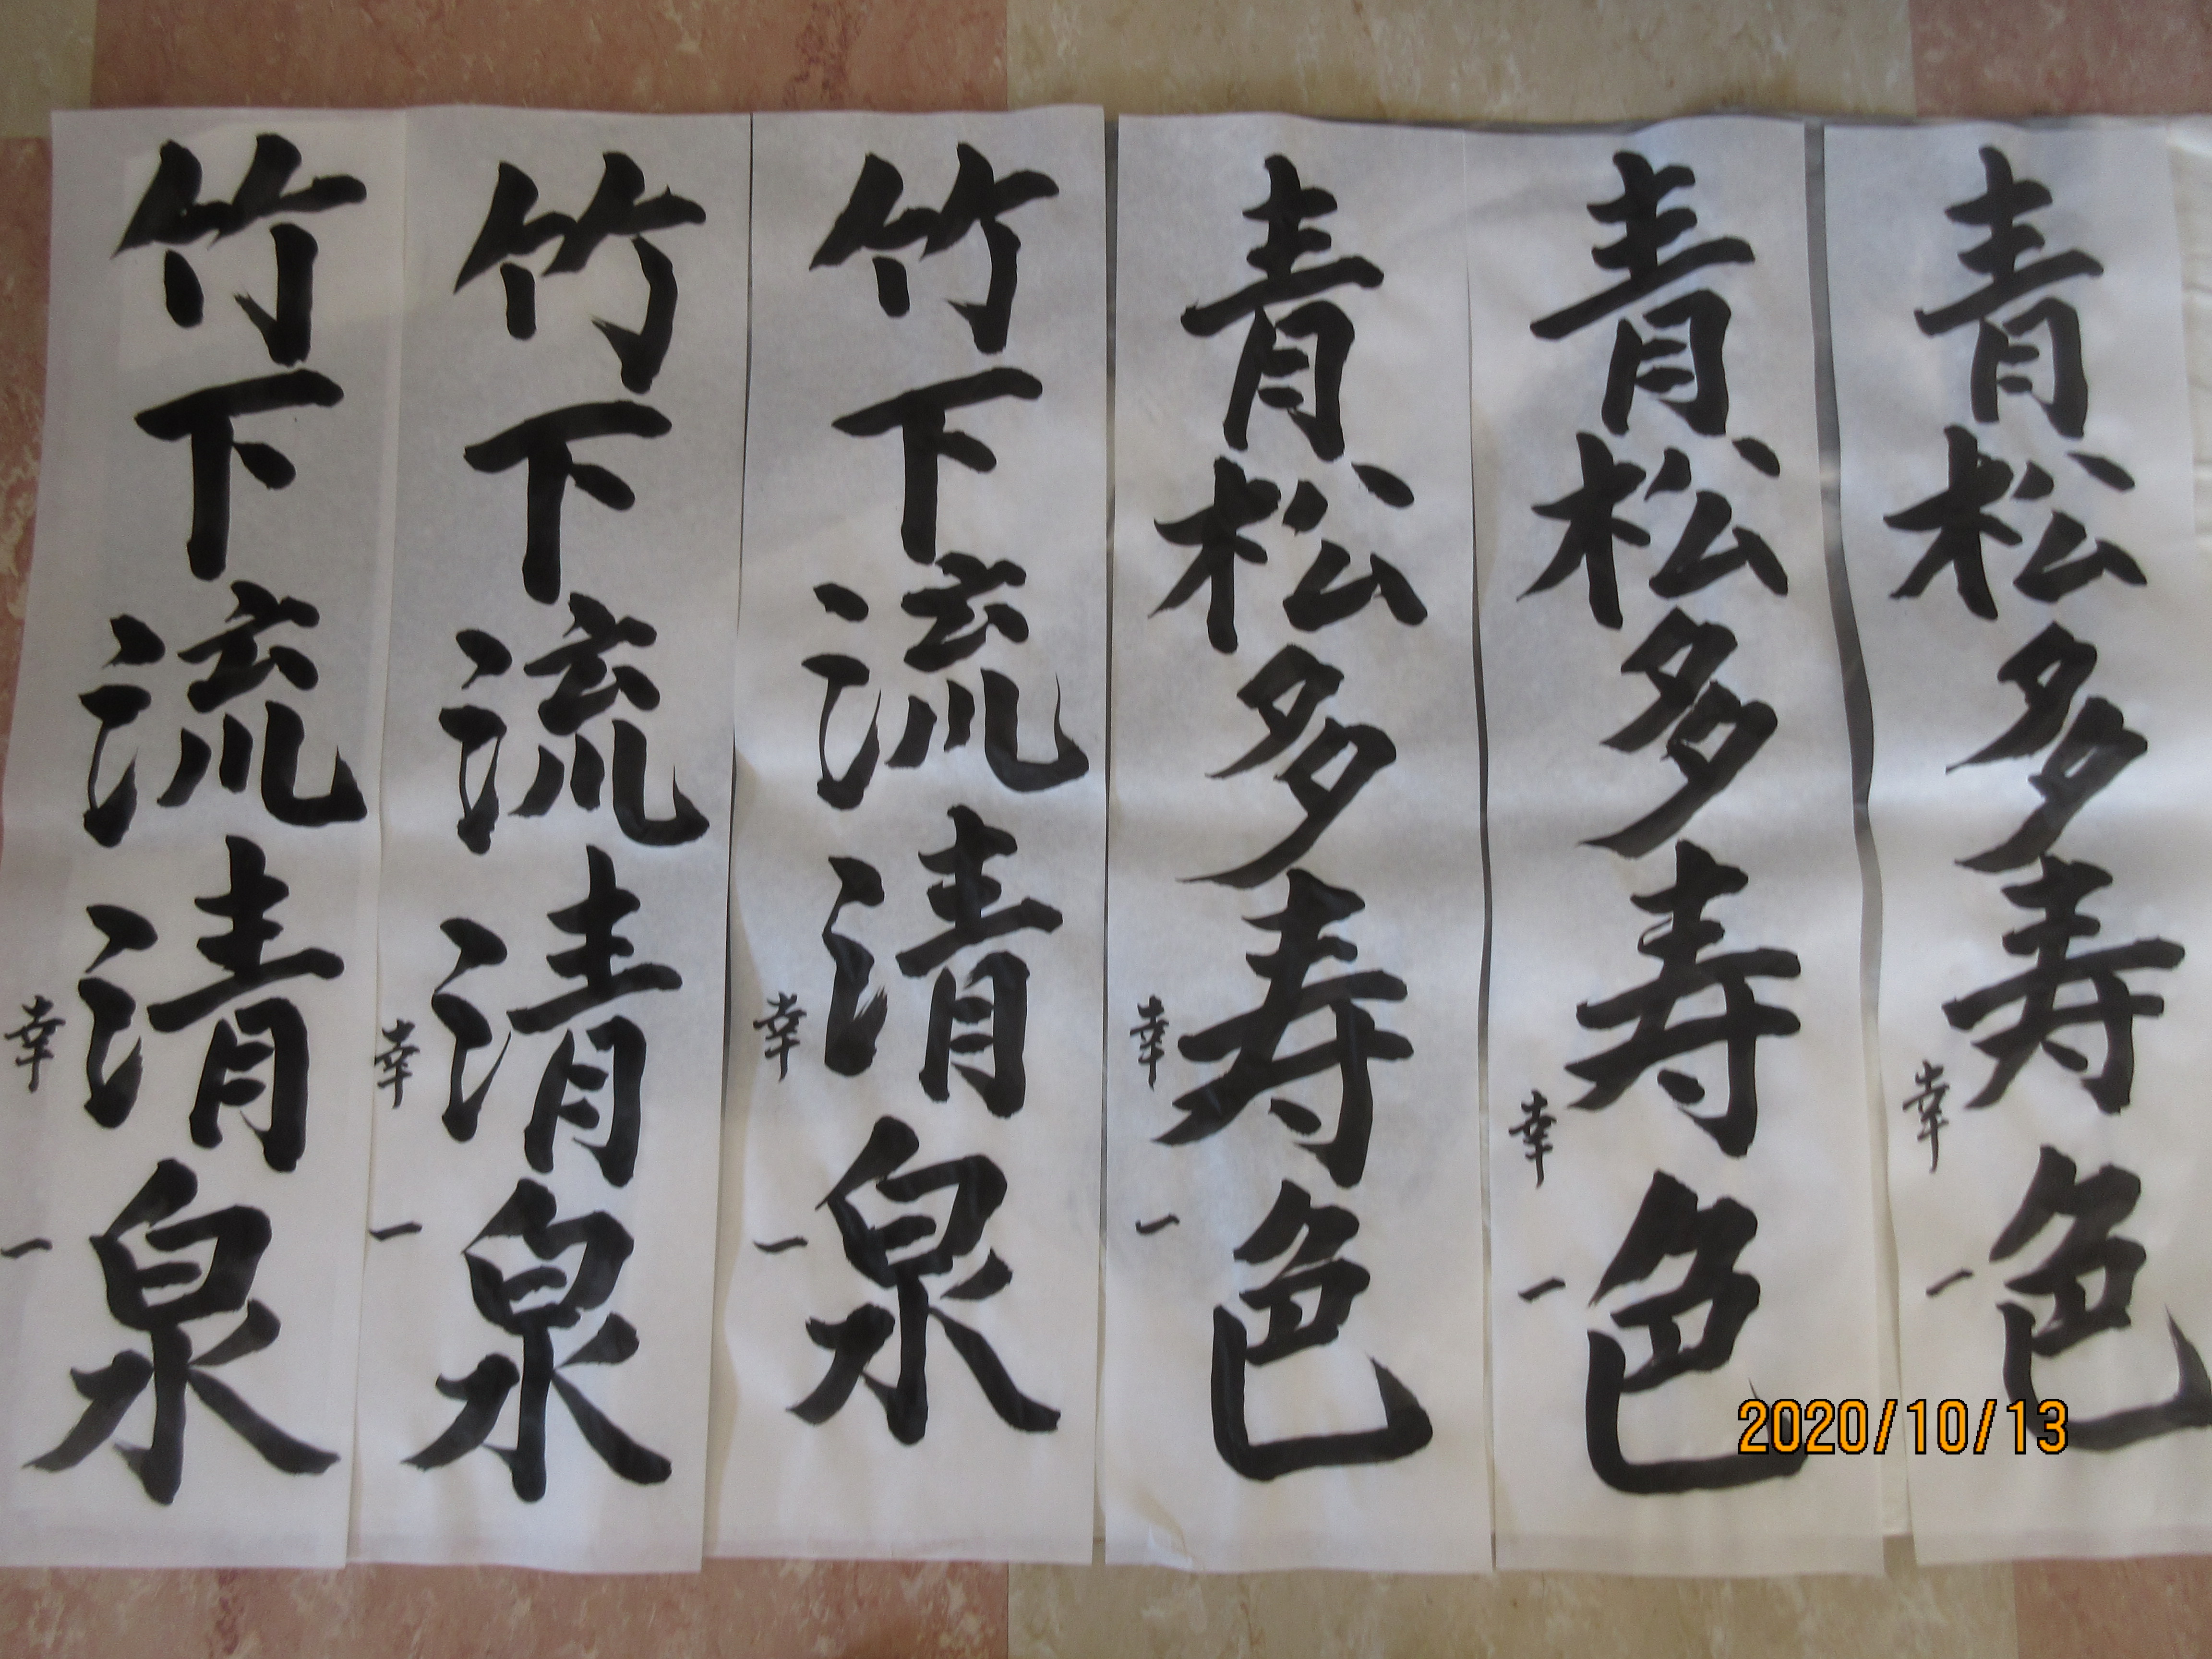 青松多寿色
幸一
青松多寿色
幸一
青松多寿色
幸一
竹下流清泉
幸一
竹下流清泉
幸一
竹下流清泉
幸一
2020/10/13